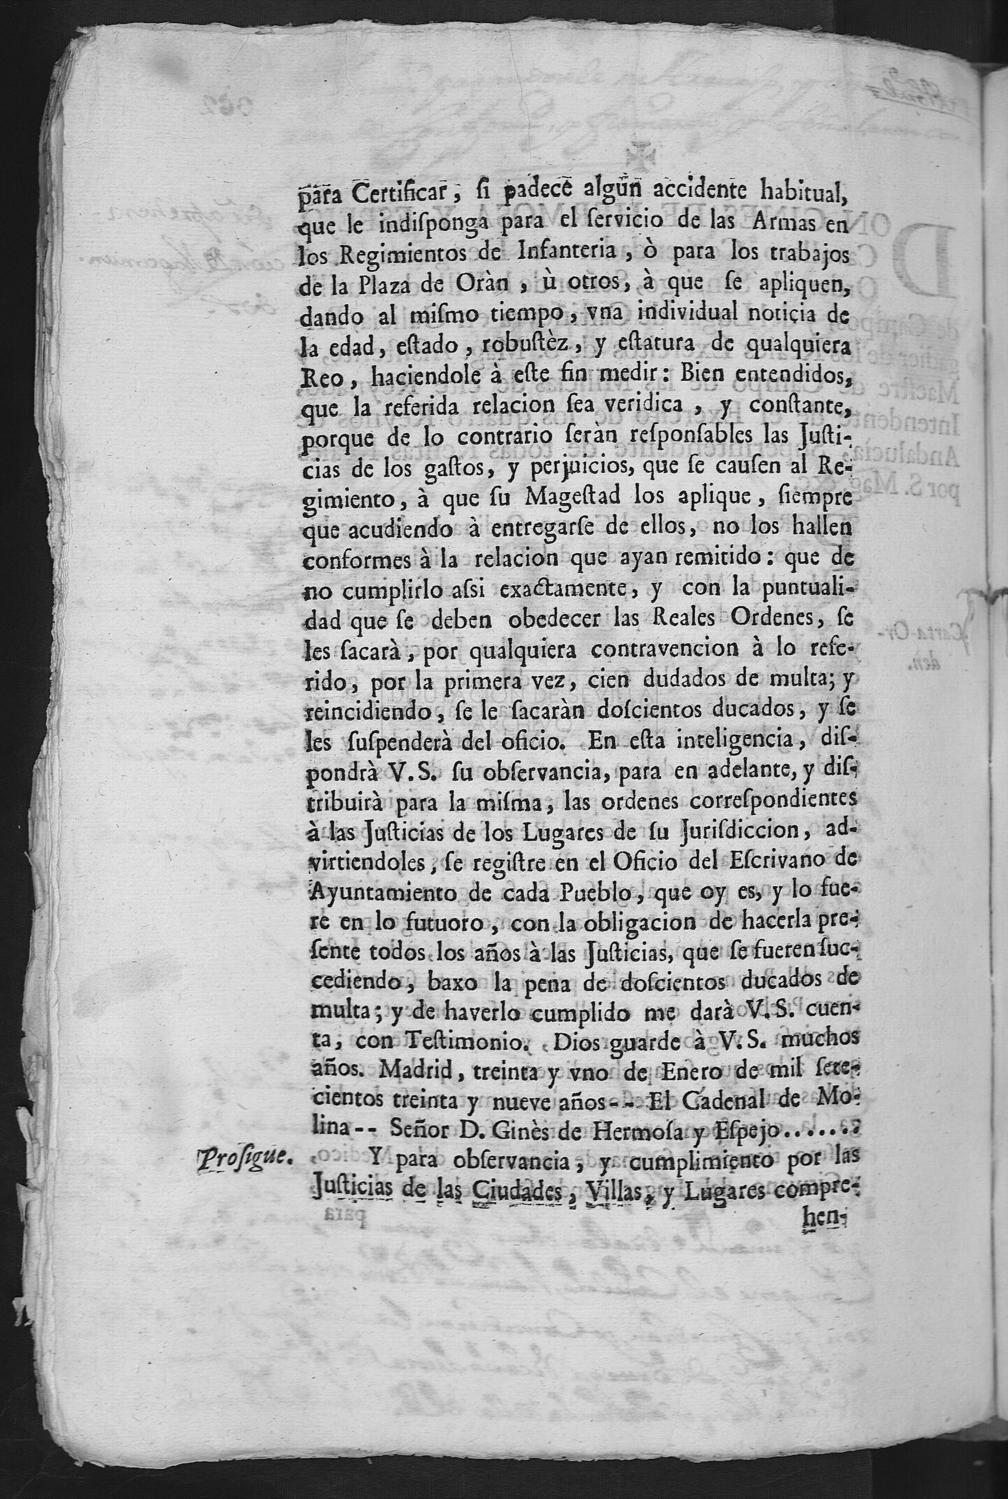 para Certificar, si padece algun accidente habitual,
que le indisponga para el servicio de las Armas en
los Regimientos de Infanteria, ò para los trabajos
de la Plaza de Oràn, ù otros, à que se apliquen,
dando al mismo tiempo, vna individual noticia de
la edad, estado, robustèz, y estatura de qualquiera
Reo, haciendole à este fin medir: Bien entendidos,
que la referida relacion sea veridica, y constante,
porque de lo contrario seràn responsables las Justi-
cias de los gastos, y perjuicios, que se causen al Re-
gimiento, à que su Magestad los aplique, siempre
que acudiendo à entregarse de ellos, no los hallen
conformes à la relacion que ayan remitido: que de
no cumplirlo assi exactamente, y con la puntuali-
dad que se deben obedecer las Reales Ordenes, se
les sacarà, por qualquiera contravencion à lo refe-
rido, por la primera vez, cien dudados de multa; y
reincidiendo, se le sacaràn doscientos ducados, y se
les suspenderà del oficio. En esta inteligencia, dis-
pondrà V.S. su observancia, para en adelante, y dis-
tribuirà para la misma, las ordenes correspondientes
à las Justicias de los Lugares de su Jurisdiccion, ad-
virtiendoles, se registre en el Oficio del Escrivano de
Ayuntamiento de cada Pueblo, que oy es, y lo fue-
re en lo futuoro, con la obligacion de hacerla pre-
sente todos los años à las Justicias, que se fueren suc-
cediendo, baxo la pena de doscientos ducados de
multa; y de haverlo cumplido me darà V.S. cuen-
ta, con Testimonio. Dios guarde à V.S. muchos
años. Madrid, treinta y vno de Enero de mil sete-
cientos treinta y nueve años-- El Cadenal de Mo-
lina-- Señor D. Ginès de Hermosa y Espejo.......
Prosigue. Y para observancia, y cumplimiento por las
Justicias de las Ciudades, Villas, y Lugares compre-
hen-